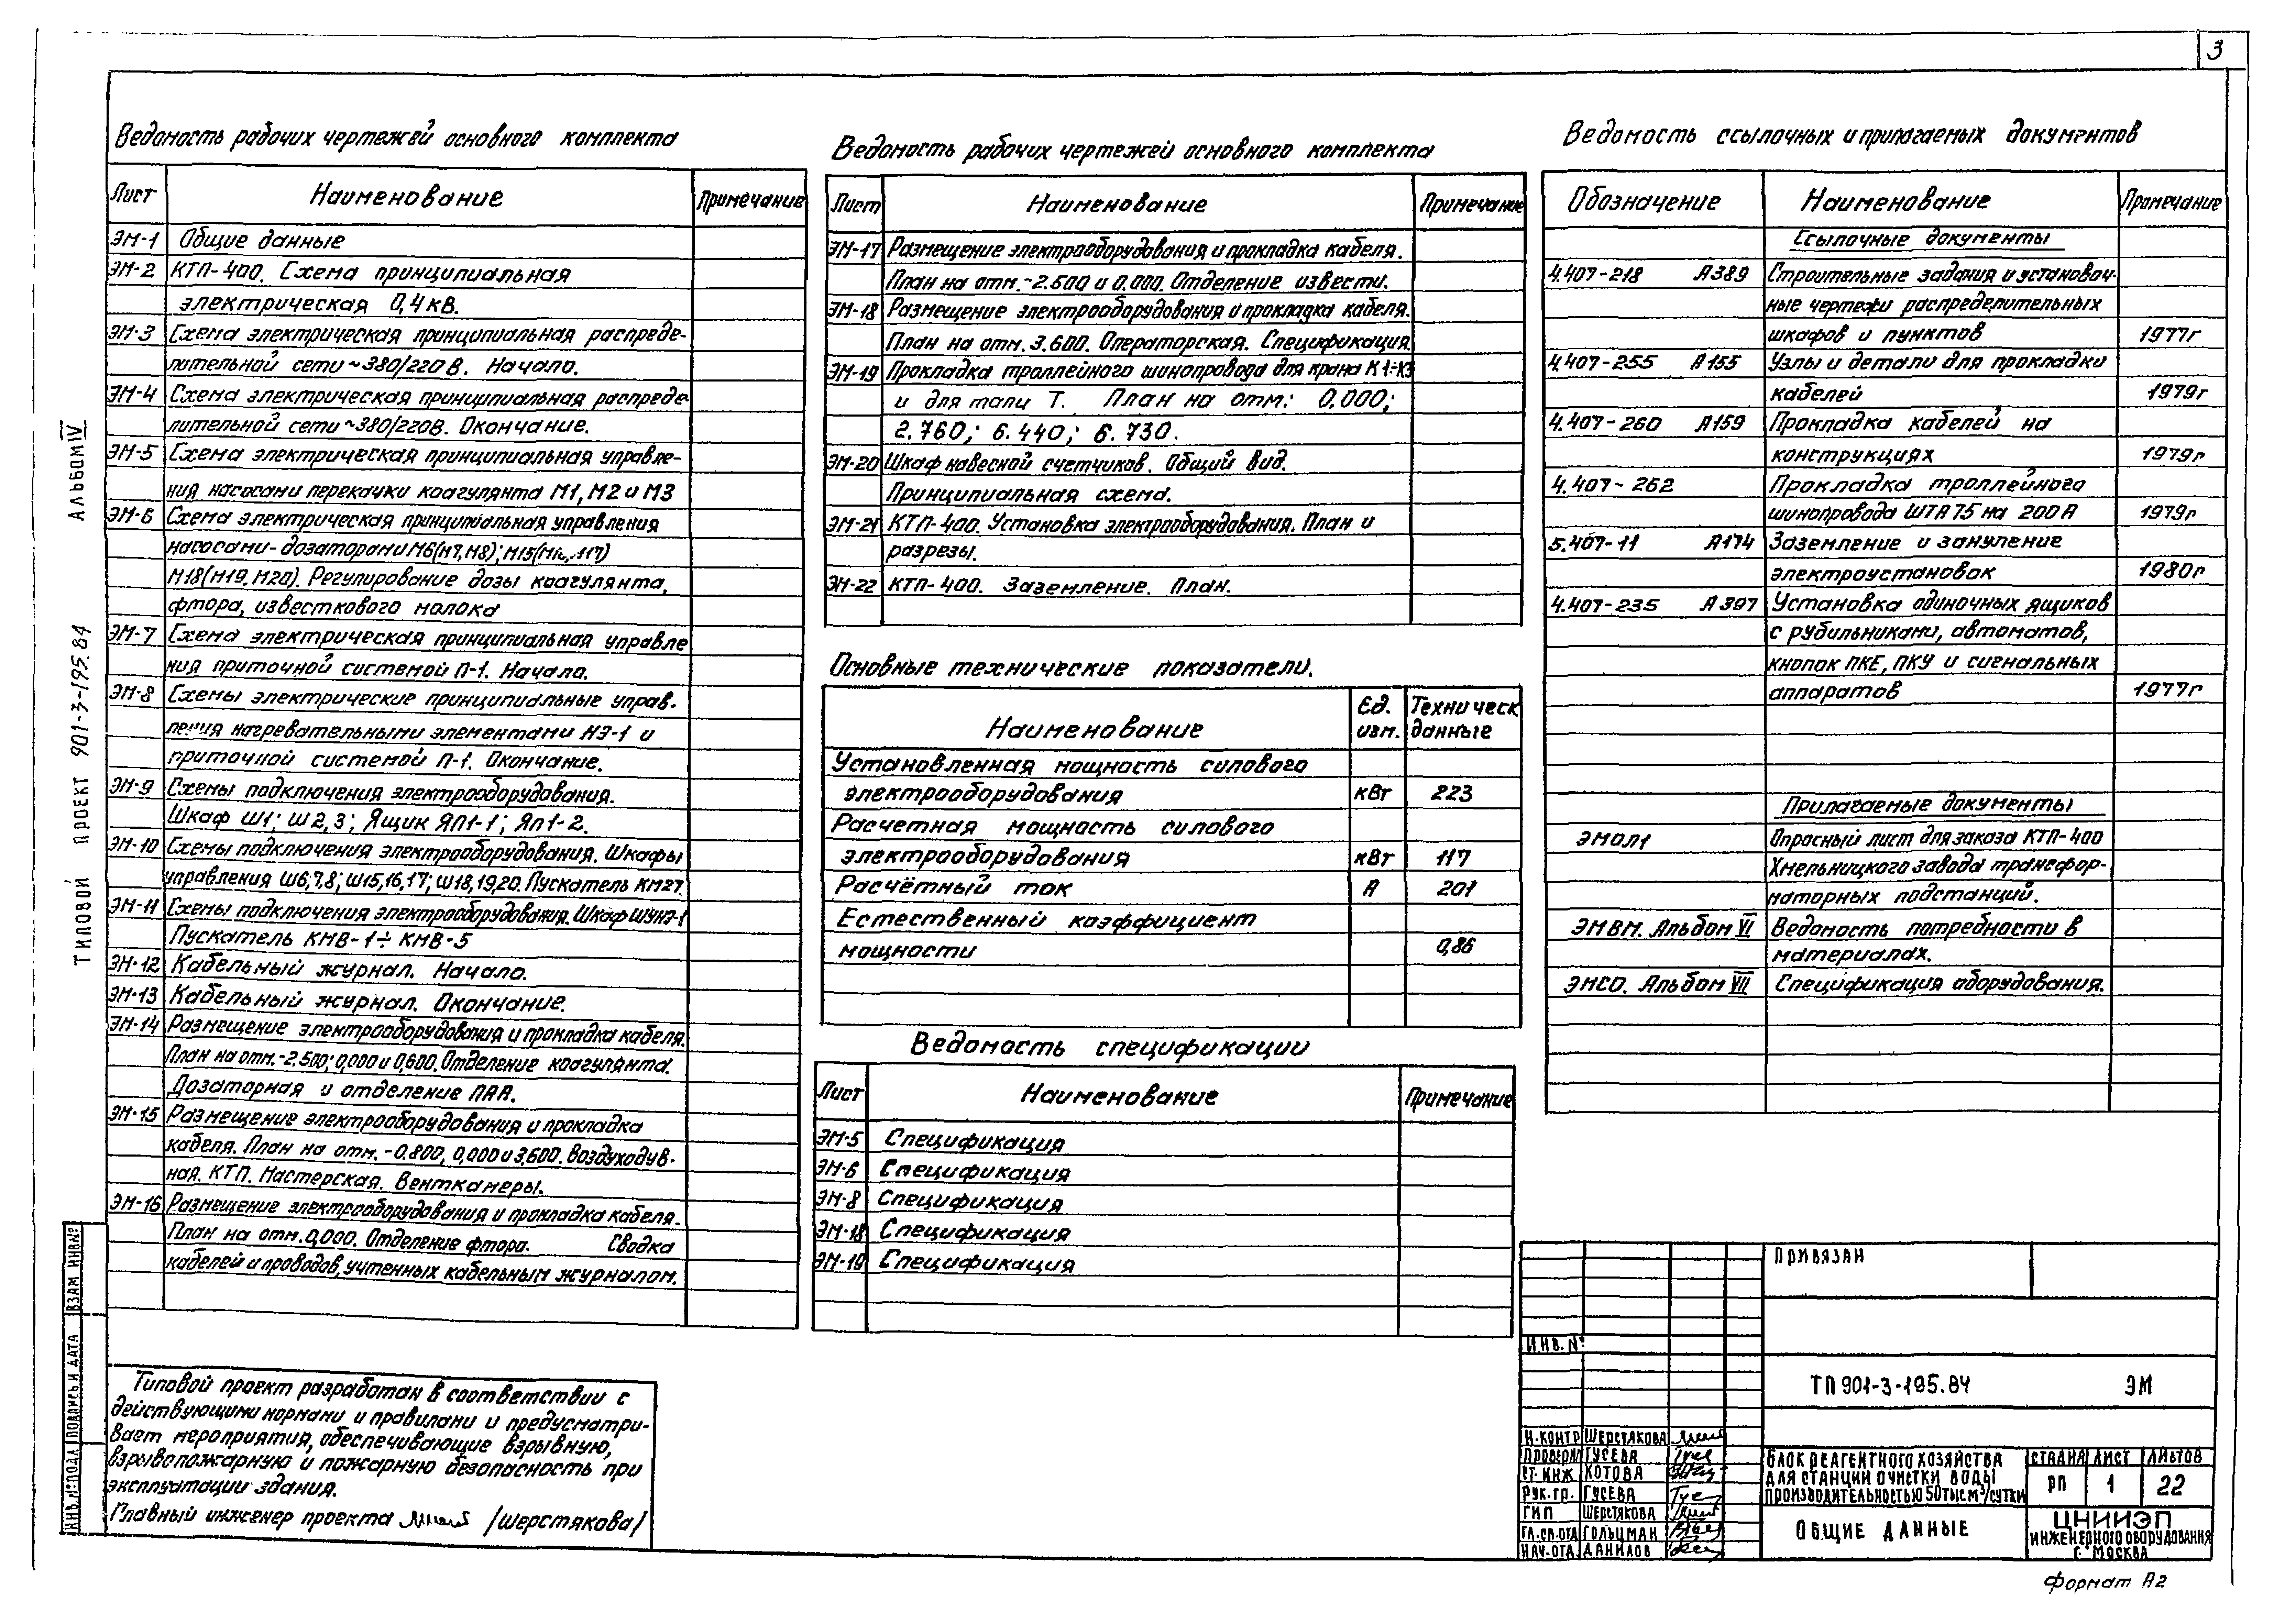 3
Ведомость рабочих чертежей основного комплекта
Лист Наименование Примечание
ЭМ-1 Общие данные
ЭМ-2 КТП-400. Схема принципиальная
электрическая 0,4кВ.
ЭМ-3 Схема электрическая принципиальная распреде-
лительной сети ~380/220В. Начало.
ЭМ-4 Схема электрическая принципиальная распреде
лительной сети ~380/220В. Окончание.
ЭМ-5 Схема электрическая принципиальная управле-
ния насосами перекачки коагулянта М1, М2 и М3
ЭМ-6 Схема электрическая принципиальная управления
насосами-дозаторами М6(М7, М8); М15(М16, М17)
М18(М19, М20). Регулирование дозы коагулянта,
фтора, известкового молока
ЭМ-7 Схема электрическая принципиальная управле
ния приточной системой П-1. Начало.
ЭМ-8 Схемы электрические принципиальные управ-
ления нагревательными элементами НЭ-1 и
приточной системой П-1. Окончание.
ЭМ-9 Схемы подключения электрооборудования.
Шкаф Ш1; Ш2,3; Ящик ЯП1-1; ЯП1-2.
ЭМ-10 Схемы подключения электрооборудования. Шкафы
управления Ш6,7,8; Ш15,16,17; Ш18,19,20. Пускатель КМ27.
ЭМ-11 Схемы подключения электрооборудования. Шкаф ШУНЭ-1
Пускатель КМВ-1÷КМВ-5
ЭМ-12 Кабельный журнал. Начало.
ЭМ-13 Кабельный журнал. Окончание.
ЭМ-14 Размещение электрооборудования и прокладка кабеля.
План на отм.-2.500; 0,000 и 0,600. Отделение коагулянта.
Дозаторная и отделение ПАА.
ЭМ-15 Размещение электрооборудования и прокладка
кабеля. План на отм. -0.800, 0,000 и 3,600. Воздуходув-
ная. КТП. Мастерская. Венткамеры.
ЭМ-16 Размещение электрооборудования и прокладка кабеля.
План на отм. 0,000. Отделение фтора. Сводка
кабелей и проводов, учтенных кабельным журналом.
Ведомость рабочих чертежей основного комплекта
Лист Наименование Примечание
ЭМ-17 Размещение электрооборудования и прокладка кабеля.
План на отм.-2.600 и 0.000. Отделение извести.
ЭМ-18 Размещение электрооборудования и прокладка кабеля.
План на отм. 3.600. Операторская. Спецификация.
ЭМ-19 Прокладка троллейного шинопровода для крана К1÷К3
и для тали Т. План на отм: 0,000;
2.760; 6.440; 6.730.
ЭМ-20 Шкаф навесной счетчиков. Общий вид.
Принципиальная схема.
ЭМ-21 КТП-400. Установка электрооборудования. План и
разрезы.
ЭМ-22 КТП-400. Заземление. План.
Основные технические показатели.
Наименование Ед. изм. Техническ данные
Установленная мощность силового
электрооборудования кВт 223
Расчетная мощность силового
электрооборудования кВт 117
Расчётный ток А 201
Естественный коэффициент
мощности 0,86
Ведомость спецификации
Лист Наименование Примечание
ЭМ-5 Спецификация
ЭМ-6 Спецификация
ЭМ-8 Спецификация
ЭМ-18 Спецификация
ЭМ-19 Спецификация
Ведомость ссылочных и прилагаемых документов
Обозначение Наименование Примечание
Ссылочные документы
4.407-218 А389 Строительные задания и установоч-
ные чертежи распределительных
шкафов и пунктов 1977г
4.407-255 А155 Узлы и детали для прокладки
кабелей 1979г
4.407-260 А159 Прокладка кабелей на
конструкциях 1979г
4.407-262 Прокладка троллейного
шинопровода ШТА75 на 200А 1979г
5.407-11 А174 Заземление и зануление
электроустановок 1980г
4.407-235 А397 Установка одиночных ящиков
с рубильниками, автоматов,
кнопок ПКЕ, ПКУ и сигнальных
аппаратов 1977г
Прилагаемые документы
ЭМОЛ1 Опросный лист для заказа КТП-400
Хмельницкого завода трансфор-
маторных подстанций.
ЭМВМ. Альбом VI Ведомость потребности в
материалах.
ЭМСО. Альбом VII Спецификация оборудования.
Типовой проект разработан в соответствии с
действующими нормами и правилами и предусматри-
вает мероприятия, обеспечивающие взрывную,
взрывопожарную и пожарную безопасность при
эксплуатации здания.
Главный инженер проекта /Шерстякова/
ТИПОВОЙ ПРОЕКТ 901-3-195.84 АЛЬБОМ IV
ИНВ.№ПОДЛ ПОДПИСЬ И ДАТА ВЗАМ ИНВ№
ПРИВЯЗАН
ИНВ.№
ТП 901-3-195.84 ЭМ
Н.КОНТР ШЕРСТЯКОВА
ПРОВЕРИЛ ГУСЕВА
СТ.ИНЖ КОТОВА
РУК.ГР. ГУСЕВА
ГИП ШЕРСТЯКОВА
ГЛ.СП.ОТД ГОЛЬЦМАН
НАЧ.ОТД ДАНИЛОВ
БЛОК РЕАГЕНТНОГО ХОЗЯЙСТВА
ДЛЯ СТАНЦИИ ОЧИСТКИ ВОДЫ
ПРОИЗВОДИТЕЛЬНОСТЬЮ 50 ТЫС М³/СУТКИ
СТАДИЯ ЛИСТ ЛИСТОВ
РП 1 22
ОБЩИЕ ДАННЫЕ
ЦНИИЭП
ИНЖЕНЕРНОГО ОБОРУДОВАНИЯ
Г. МОСКВА
Формат А2